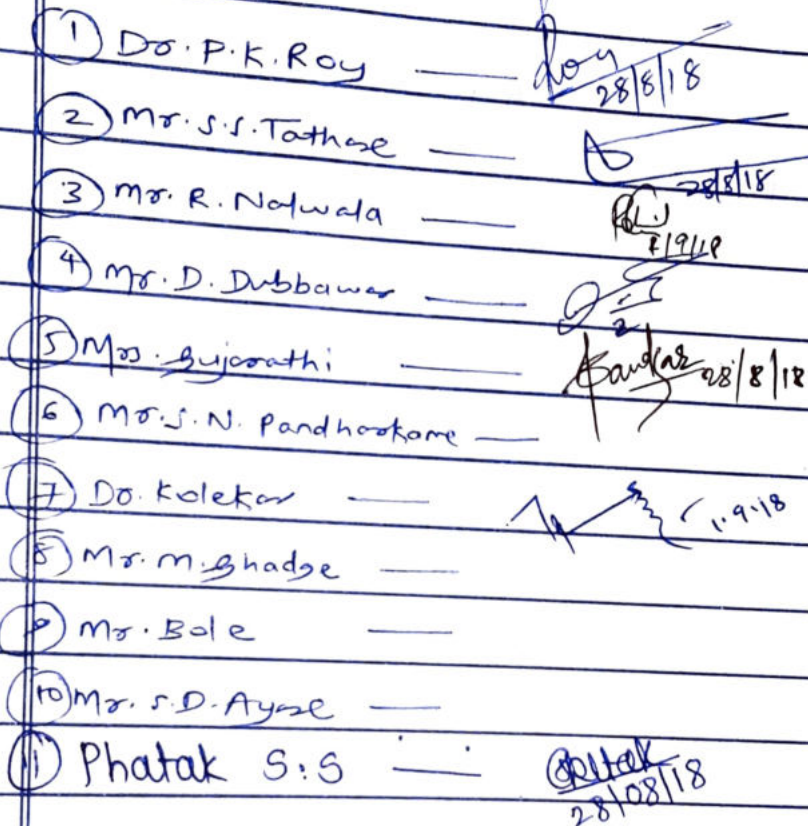 1 Dr. P. K. Roy — Roy 28/8/18
2 Mr. S. S. Tathase — 28/8/18
3 Mr. R. Nalwala — 1/9/18
4 Mr. D. Dubbawar —
5 Mrs. Gujarathi — 28/8/18
6 Mr. S. N. Pandharkame —
7 Dr. Kolekar — 1.9.18
8 Mr. M. Ghadge —
9 Mr. Bole —
10 Mr. S. D. Ayare —
11 Phatak S. S — 28/08/18